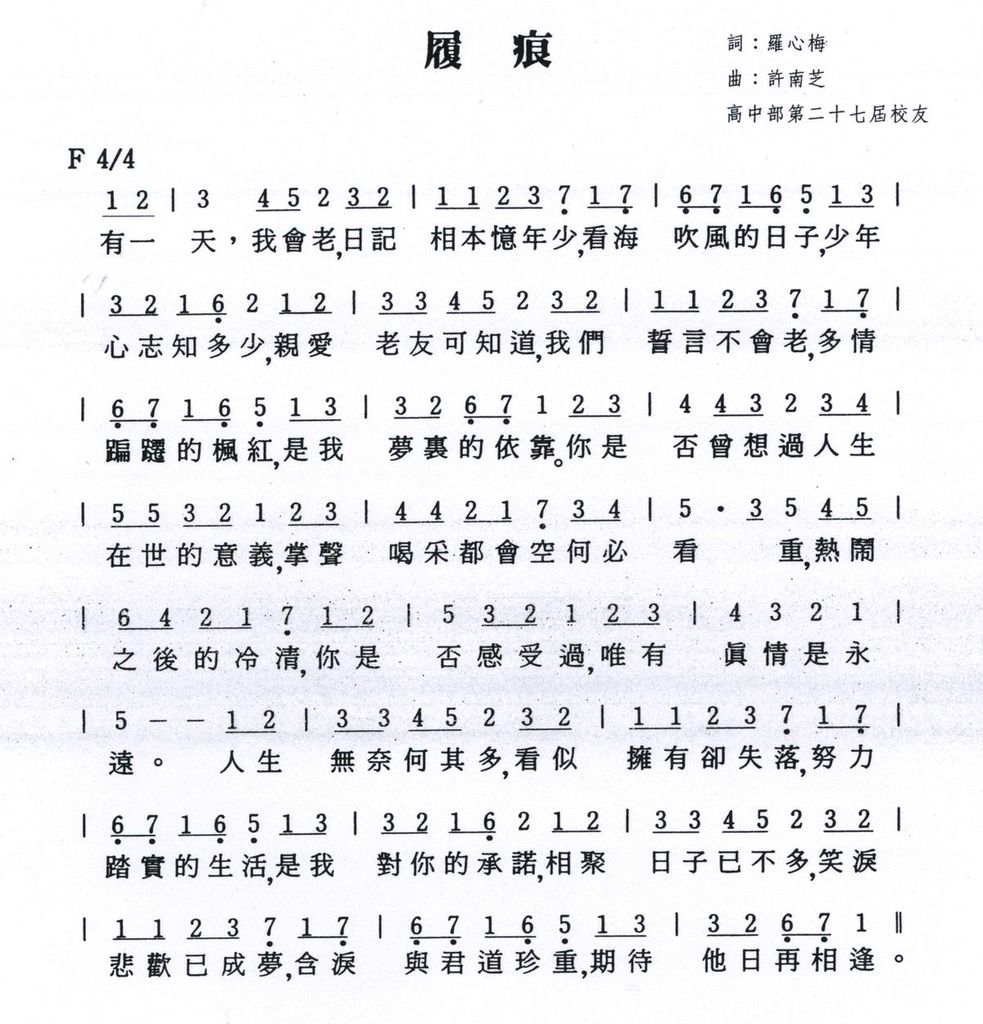 履痕
詞：羅心梅
曲：許南芝
高中部第二十七屆校友
F 4/4
1 2 | 3 4 5 2 3 2 | 1 1 2 3 7̣ 1 7̣ | 6̣ 7̣ 1 6̣ 5̣ 1 3 |
有一 天，我會老,日記 相本憶年少,看海 吹風的日子,少年
| 3 2 1 6̣ 2 1 2 | 3 3 4 5 2 3 2 | 1 1 2 3 7̣ 1 7̣ |
心志知多少,親愛 老友可知道,我們 誓言不會老,多情
| 6̣ 7̣ 1 6̣ 5̣ 1 3 | 3 2 6̣ 7̣ 1 2 3 | 4 4 3 2 3 4 |
蹁躚的楓紅,是我 夢裏的依靠。你是 否曾想過人生
| 5 5 3 2 1 2 3 | 4 4 2 1 7̣ 3 4 | 5 · 3 5 4 5 |
在世的意義,掌聲 喝采都會空何必 看 重,熱鬧
6 4 2 1 7̣ 1 2 | 5 3 2 1 2 3 | 4 3 2 1 |
之後的冷清,你是 否感受過,唯有 眞情是永
| 5 － － 1 2 | 3 3 4 5 2 3 2 | 1 1 2 3 7̣ 1 7̣ |
遠。 人生 無奈何其多,看似 擁有卻失落,努力
| 6̣ 7̣ 1 6̣ 5̣ 1 3 | 3 2 1 6̣ 2 1 2 | 3 3 4 5 2 3 2 |
踏實的生活,是我 對你的承諾,相聚 日子已不多,笑淚
| 1 1 2 3 7̣ 1 7̣ | 6̣ 7̣ 1 6̣ 5̣ 1 3 | 3 2 6̣ 7̣ 1 ‖
悲歡已成夢,含淚 與君道珍重,期待 他日再相逢。